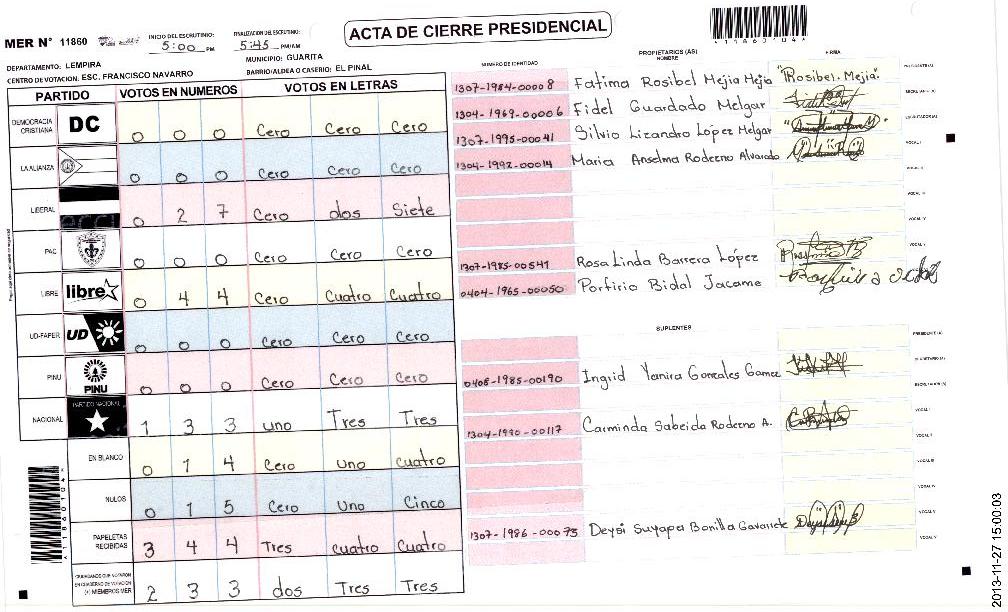 ACTA DE CIERRE PRESIDENCIAL
MER N° 11860
INICIO DEL ESCRUTINIO: 5:00 PM
FINALIZACION DEL ESCRUTINIO: 5:45 PM/AM
*11860104*
DEPARTAMENTO: LEMPIRA
MUNICIPIO: GUARITA
CENTRO DE VOTACION: ESC. FRANCISCO NAVARRO
BARRIO/ALDEA O CASERIO: EL PINAL
PARTIDO VOTOS EN NUMEROS VOTOS EN LETRAS
DEMOCRACIA CRISTIANA DC 0 0 0 Cero Cero Cero
LA ALIANZA 0 0 0 Cero Cero Cero
LIBERAL 0 2 7 Cero dos Siete
PAC 0 0 0 Cero Cero Cero
LIBRE libre 0 4 4 Cero Cuatro Cuatro
UD-FAPER UD 0 0 0 Cero Cero Cero
PINU PINU 0 0 0 Cero Cero Cero
NACIONAL PARTIDO NACIONAL 1 3 3 uno Tres Tres
EN BLANCO 0 1 4 Cero uno cuatro
NULOS 0 1 5 Cero Uno Cinco
PAPELETAS RECIBIDAS 3 4 4 Tres cuatro Cuatro
CIUDADANOS QUE VOTARON EN CUADERNO DE VOTACION (+) MIEMBROS MER 2 3 3 dos Tres Tres
*11860104*
NUMERO DE IDENTIDAD PROPIETARIOS (AS) NOMBRE FIRMA
1307-1984-00008 Fatima Rosibel Mejia Mejia "Rosibel. Mejia." PRESIDENTE (A)
1304-1969-00006 Fidel Guardado Melgar SECRETARIO (A)
1307-1995-00041 Silvio Lizandro López Melgar ESCRUTADOR (A)
1304-1992-00014 Maria Anselma Rodezno Alvarado VOCAL I
VOCAL II
VOCAL III
VOCAL IV
1307-1985-00541 Rosa Linda Barrera López VOCAL V
0404-1965-00050 Porfirio Bidal Jacame
SUPLENTES
PRESIDENTE (A)
0405-1985-00190 Ingrid Yanira Gonzales Gamez SECRETARIO (A)
ESCRUTADOR (A)
1304-1990-00117 Carminda Sabeida Rodezno A. VOCAL I
VOCAL II
VOCAL III
VOCAL IV
1307-1986-00073 Deysi Suyapa Bonilla Gavarrete VOCAL V
2013-11-27 15:00:03